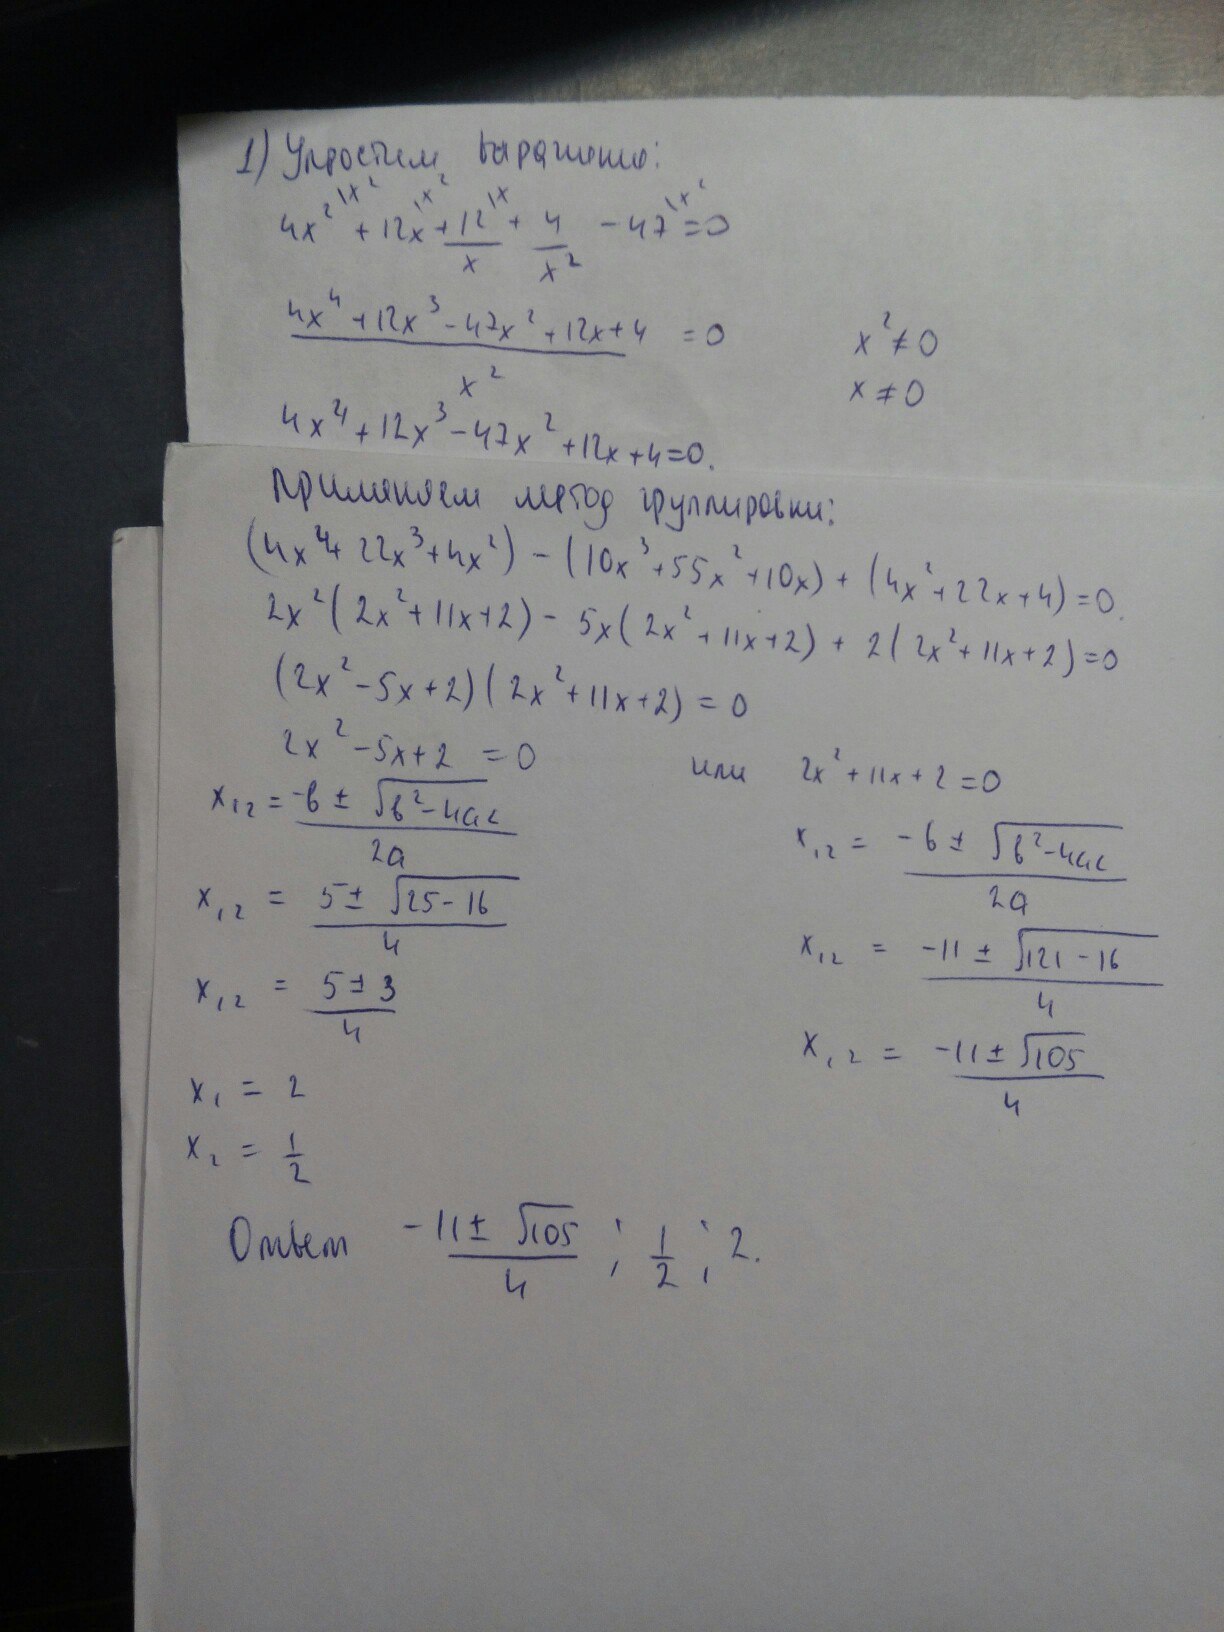 1) Упростим выражение:
4x²\x² + 12x\x² + 12\x/x + 4/x² - 47\x² = 0
(4x⁴ + 12x³ - 47x² + 12x + 4)/x² = 0    x² ≠ 0
x ≠ 0
4x⁴ + 12x³ - 47x² + 12x + 4 = 0.
Применяем метод группировки:
(4x⁴ + 22x³ + 4x²) - (10x³ + 55x² + 10x) + (4x² + 22x + 4) = 0.
2x²(2x² + 11x + 2) - 5x(2x² + 11x + 2) + 2(2x² + 11x + 2) = 0
(2x² - 5x + 2)(2x² + 11x + 2) = 0
2x² - 5x + 2 = 0    или    2x² + 11x + 2 = 0
x₁₂ = (-b ± √(b² - 4ac))/2a    x₁₂ = (-b ± √(b² - 4ac))/2a
x₁₂ = (5 ± √(25 - 16))/4    x₁₂ = (-11 ± √(121 - 16))/4
x₁₂ = (5 ± 3)/4    x₁₂ = (-11 ± √105)/4
x₁ = 2
x₂ = 1/2
Ответ (-11 ± √105)/4 ; 1/2 ; 2.